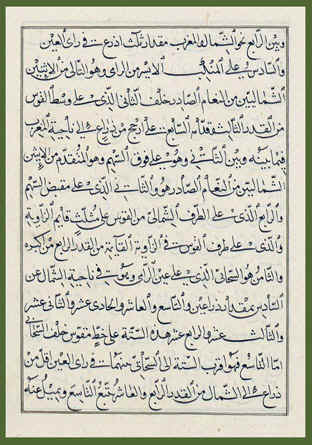 وبين الرابع نحو الشمال والمغرب مقدار ثلث اذرع في راى العين
والسادس على المنكب الايسر من الرامى وهو التالى من الاثنين
الشماليين من النعام الصادر خلف الثانى الذى على وسط القوس
من القدر الثالث قدام السابع على اربع من ذراع الى ناحية المغرب
فيما بينه وبين الثانى وهو على فوق السهم وهو المتقدم من الاثنين
الشماليين من النعام الصادر هو والثانى الذى على مقبض السهم
والرابع الذى على الطرف الشمالى من القوس على مثلث قايم الزاوية
والذى على طرف القوس فى الزاوية القايمة من القدر الرابع من اكبره
والثامن هو السحابى الذى على عين الرامى ويبقى فى ناحية الشمال عن
السادس بمقدار ذراعين والتاسع والعاشر والحادى عشر والثانى عشر
والثالث عشر والرابع عشر هذه الستة على خط مقوس خلف السحابى
اما التاسع فهو اقرب الستة الى السحابى بينهما فى راى العين اقل من
ذراع الى الشمال من القدر الرابع والعاشر يتبع التاسع ويميل عنه